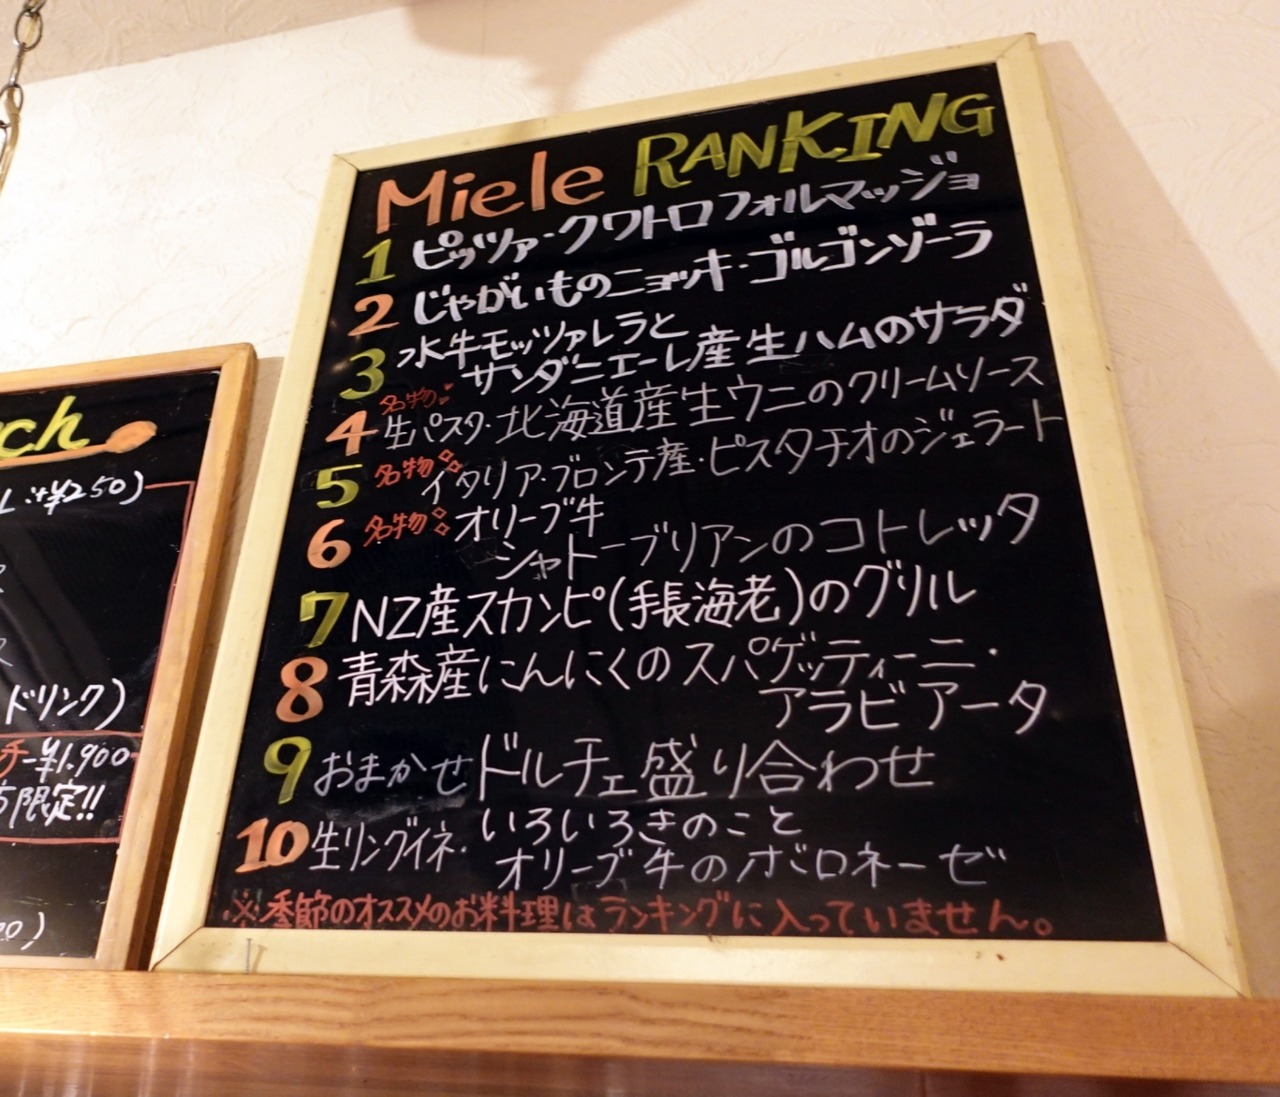 Miele RANKING
1 ピッツァ・クワトロフォルマッジョ
2 じゃがいものニョッキ・ゴルゴンゾーラ
3 水牛モッツァレラと
サンダニエーレ産生ハムのサラダ
名物
4 生パスタ・北海道産生ウニのクリームソース
5 名物 イタリア・ブロンテ産・ピスタチオのジェラート
6 名物 オリーブ牛
シャトーブリアンのコトレッタ
7 NZ産スカンピ(手長海老)のグリル
8 青森産にんにくのスパゲッティーニ・
アラビアータ
9 おまかせドルチェ盛り合わせ
10 生リングイネ・いろいろきのこと
オリーブ牛のボロネーゼ
※季節のオススメのお料理はランキングに入っていません。
ch
¥250)
ドリンク)
チ-¥1,900-
限定!!